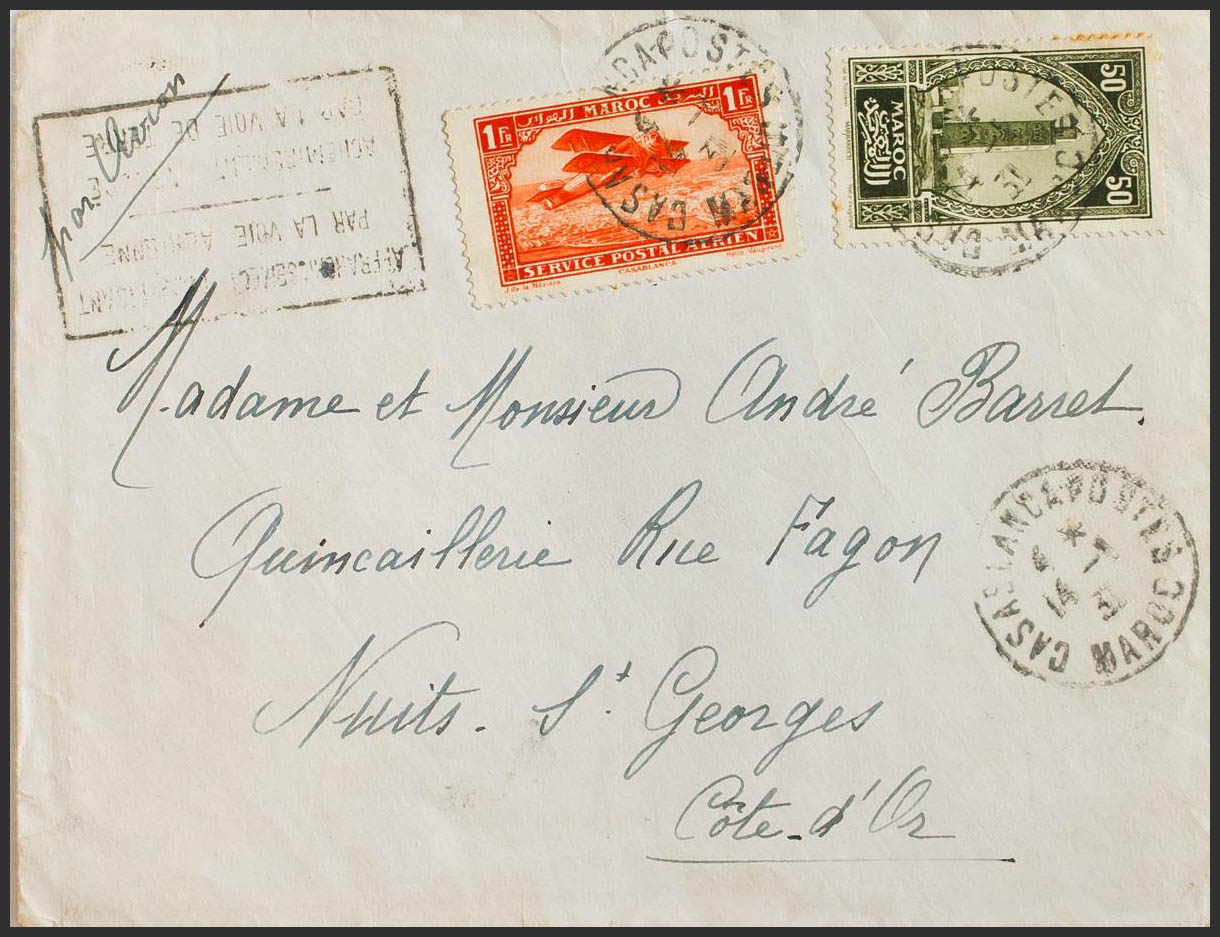 par Avion
AFFRANCHISSEMENT
PAR LA VOIE AERIENNE
ACHEMINEMENT
PAR LA VOIE DE
1 FR MAROC البريد الهوائي 1 FR
SERVICE POSTAL AÉRIEN
CASABLANCA
J. de la Nézière
Hélio Vaugirard
50 MAROC 50
CASABLANCA POSTES
MAROC
Madame et Monsieur André Barret.
Quincaillerie Rue Fagon
Nuits - St. Georges
Côte-d'Or
CASABLANCA POSTES
* 7
14 31
MAROC